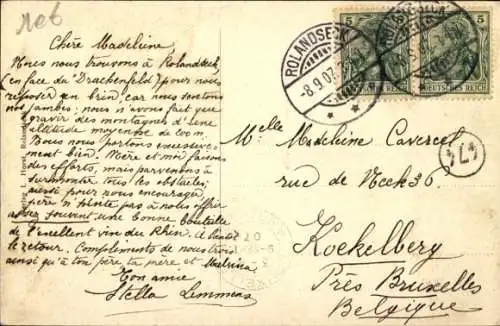 Neb
Chère Madeleine,
Nous nous trouvons à Rolandseck
(en face du Drachenfeld) pour nous
reposer un brin, car nous sentons
nos jambes: nous n'avons fait que
gravir des montagnes d'une
altitude moyenne de 200 m.
Nous nous portons excessive-
ment bien. Mère et moi faisons
des efforts, mais parvenons à
surmonter tous les obstacles;
aussi pour nous encourager,
père n'hésite pas à nous offrir
assez souvent une bonne bouteille
de l'excellent vin du Rhin. A bientôt
le retour. Compliments de nous tous
ainsi qu'à ton père, ta mère et
Ton amie
Stella Lemmens
ROLANDSECK
8.9.07
5
5
DEUTSCHES REICH
Melle Madeleine
rue de Neck 36
Koekelberg
Près Bruxelles
Belgique